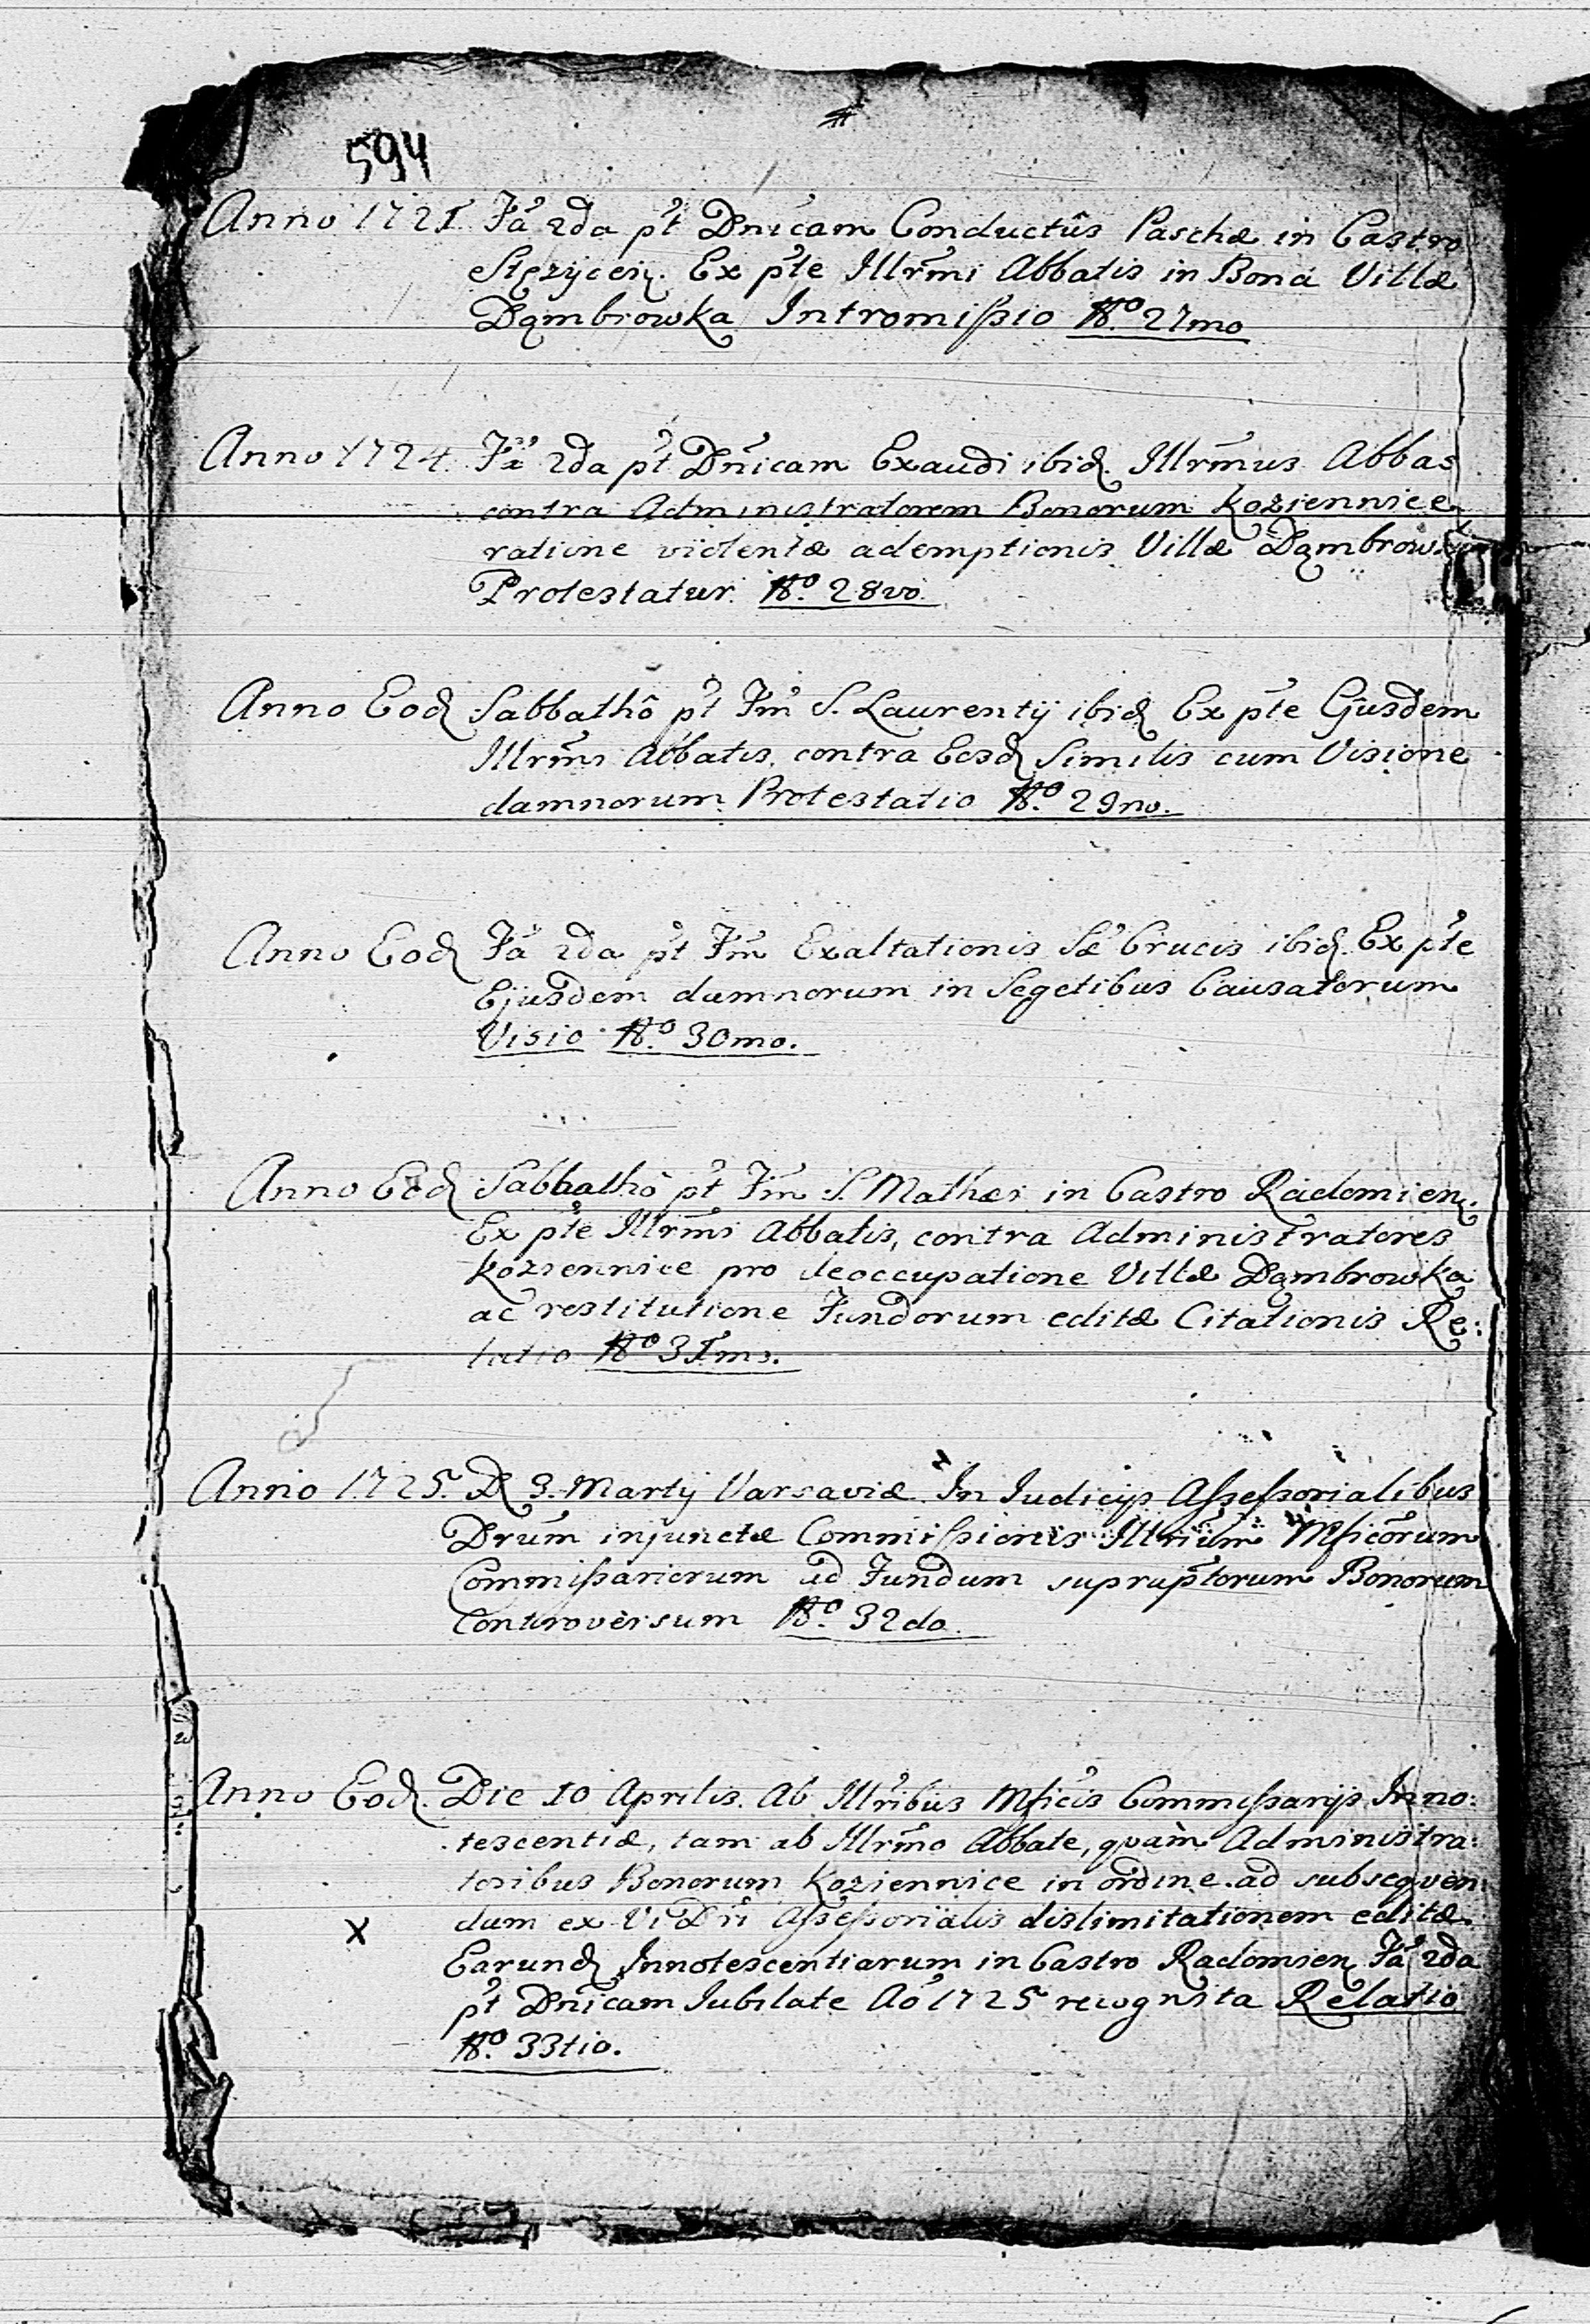 594
Anno 1721. Fã 2da p̃t Dnicam Conductûs Paschæ in Castro
Stęzyceñ. Ex p̃te Illrm̃i Abbatis in Bona Villæ
Dąmbrowka Intromissio No. 27mo
Anno 1724. Fã 2da p̃t Dñicam Exaudi ibid. Illrm̃us Abbas
contra Administratorem Bonorum Koziennice
ratione violentæ ademptionis Villæ
Protestatur. No. 28vo.
Anno Eod Sabbathô p̃t Fm̃ S. Laurentij ibid Ex p̃te Ejusdem
Illrm̃i Abbatis, contra Eosd Similis cum Visione
damnorum Protestatio No. 29no.
Anno Eod Fã 2da p̃t Fm̃ Exaltationis Sæ Crucis ibid. Ex p̃te
Ejusdem damnorum in Segetibus Causatorum
Visio No. 30mo.
Anno Eod Sabbathô p̃t Fm̃ S. Mathæi in Castro Radomien.
Ex p̃te Illrm̃i Abbatis, contra Administratores
Koziennice pro deoccupatione Villæ Dąmbrowka
ac restitutione Fundorum editæ Citationis Re:
latio No 31mo.
Anno 1725. D 3. Martij Varsaviæ In Iudicijs Assessorialibus
Drum̃ injunctæ Commissionis Illrium̃ Mficõrum
Commissariorum ad Fundum suprap̃torum Bonorum
Controversum No. 32do.
Anno Eod. Die 10 Aprilis. Ab Illr̃ibus Mficis Commissarijs Inno:
tescentiæ, tam ab Illrm̃o Abbate, quàm Administra:
toribus Bonorum Koziennice in ordine ad subsequen:
dum ex Vi Dti Assessorialis dislimitationem editæ.
X
Earund Innotescentiarum in Castro Radomien Fã 2da
p̃t Dñicam Iubilate Ao 1725 recognita Relatio
No. 33tio.